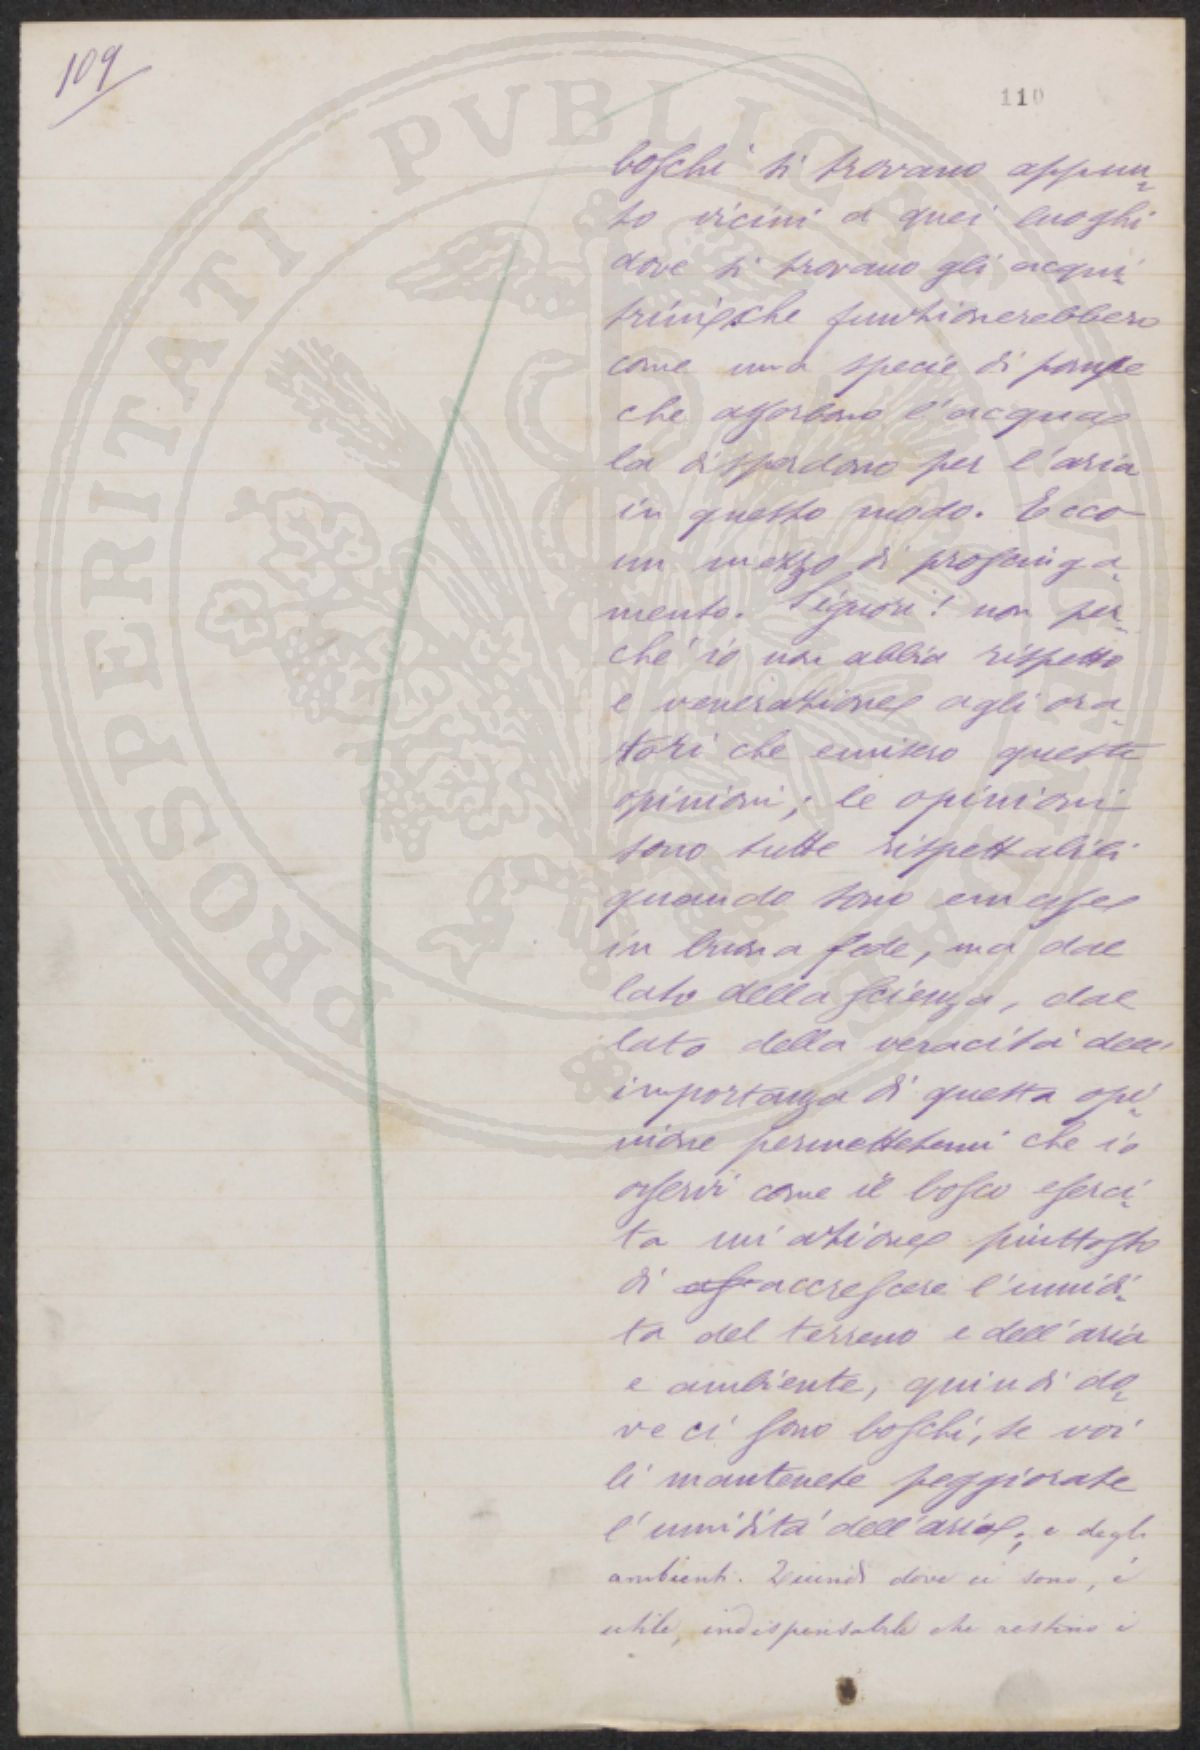 109
110
PROSPERITATI PVBLICAE
boschi si trovano appun-
to vicini a quei luoghi
dove si trovano gli acqui-
trini che funzionerebbero
come una specie di pompe
che assorbono l'acqua e
la disperdono per l'aria
in questo modo. Ecco
un mezzo di prosciuga-
mento. Signori! non per-
chè io non abbia rispetto
e venerazione agli ora-
tori che emisero queste
opinioni; le opinioni
sono tutte rispettabili
quando sono emesse
in buona fede, ma dal
lato della scienza, dal
lato della veracità dell'
importanza di questa opi-
nione permettetemi che io
osservi come il bosco eserci-
ta un'azione piuttosto
di as accrescere l'umidi-
ta del terreno e dell'aria
e ambiente, quindi do-
ve ci sono boschi, se voi
li mantenete peggiorate
l'umidità dell'aria, e degli
ambienti. Quindi dove ci sono, è
utile, indispensabile che restino i